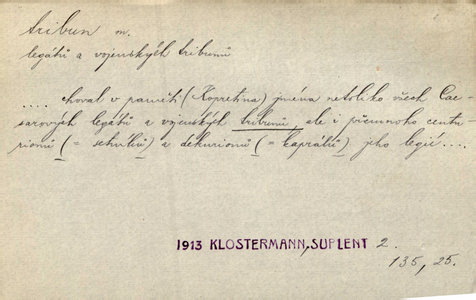 tribun m.
legátů a vojenských tribunů
.... choval v paměti (Kopretina) jména netoliko všech Cae-
sarových legátů a vojenských tribunů, ale i přemnoho centu-
rionů (= setníků) a dekurionů (= kaprálů) jeho legií ....
1913 KLOSTERMANN, SUPLENT 2.
135, 25.